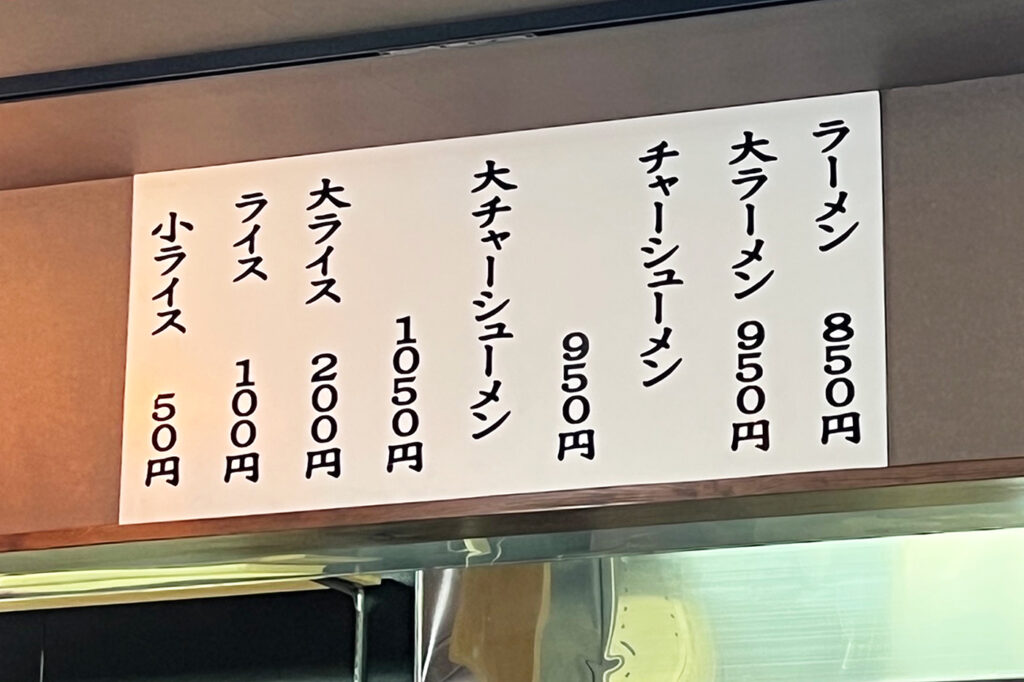 ラーメン 850円
大ラーメン 950円
チャーシューメン
950円
大チャーシューメン
1050円
大ライス 200円
ライス 100円
小ライス 50円